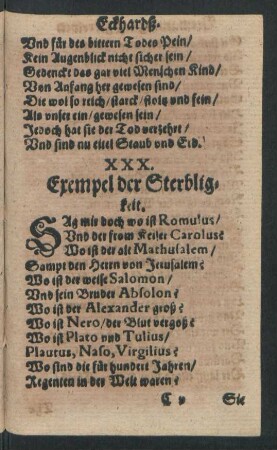 Eckhardß-
Vnd für des bittern Todes Pein/
Kein Augenblick nicht sicher sein/
Gedenckt das gar viel Menschen Kind/
Von Anfang her gewesen sind/
Die wol so reich/starck/stoltz vnd fein/
Als vnser ein/gewesen sein/
Jedoch hat sie der Tod verzehrt/
Vnd sind nu eitel Staub vnd Erd.
XXX.
Exempel der Sterblig-
keit.
SAg mir doch wo ist Romulus/
Vnd der from Keiser Carolus?
Wo ist der alt Mathusalem/
Sampt den Herrn von Jerusalem?
Wo ist der weise Salomon/
Vnd sein Bruder Absolon?
Wo ist der Alexander groß?
Wo ist Nero/der Blut vergoß?
Wo ist Plato vnd Tulius/
Plautus, Naso, Virgilius?
Wo sind die für hundert Jahren/
Regenten in der Welt waren?
C v
Sie